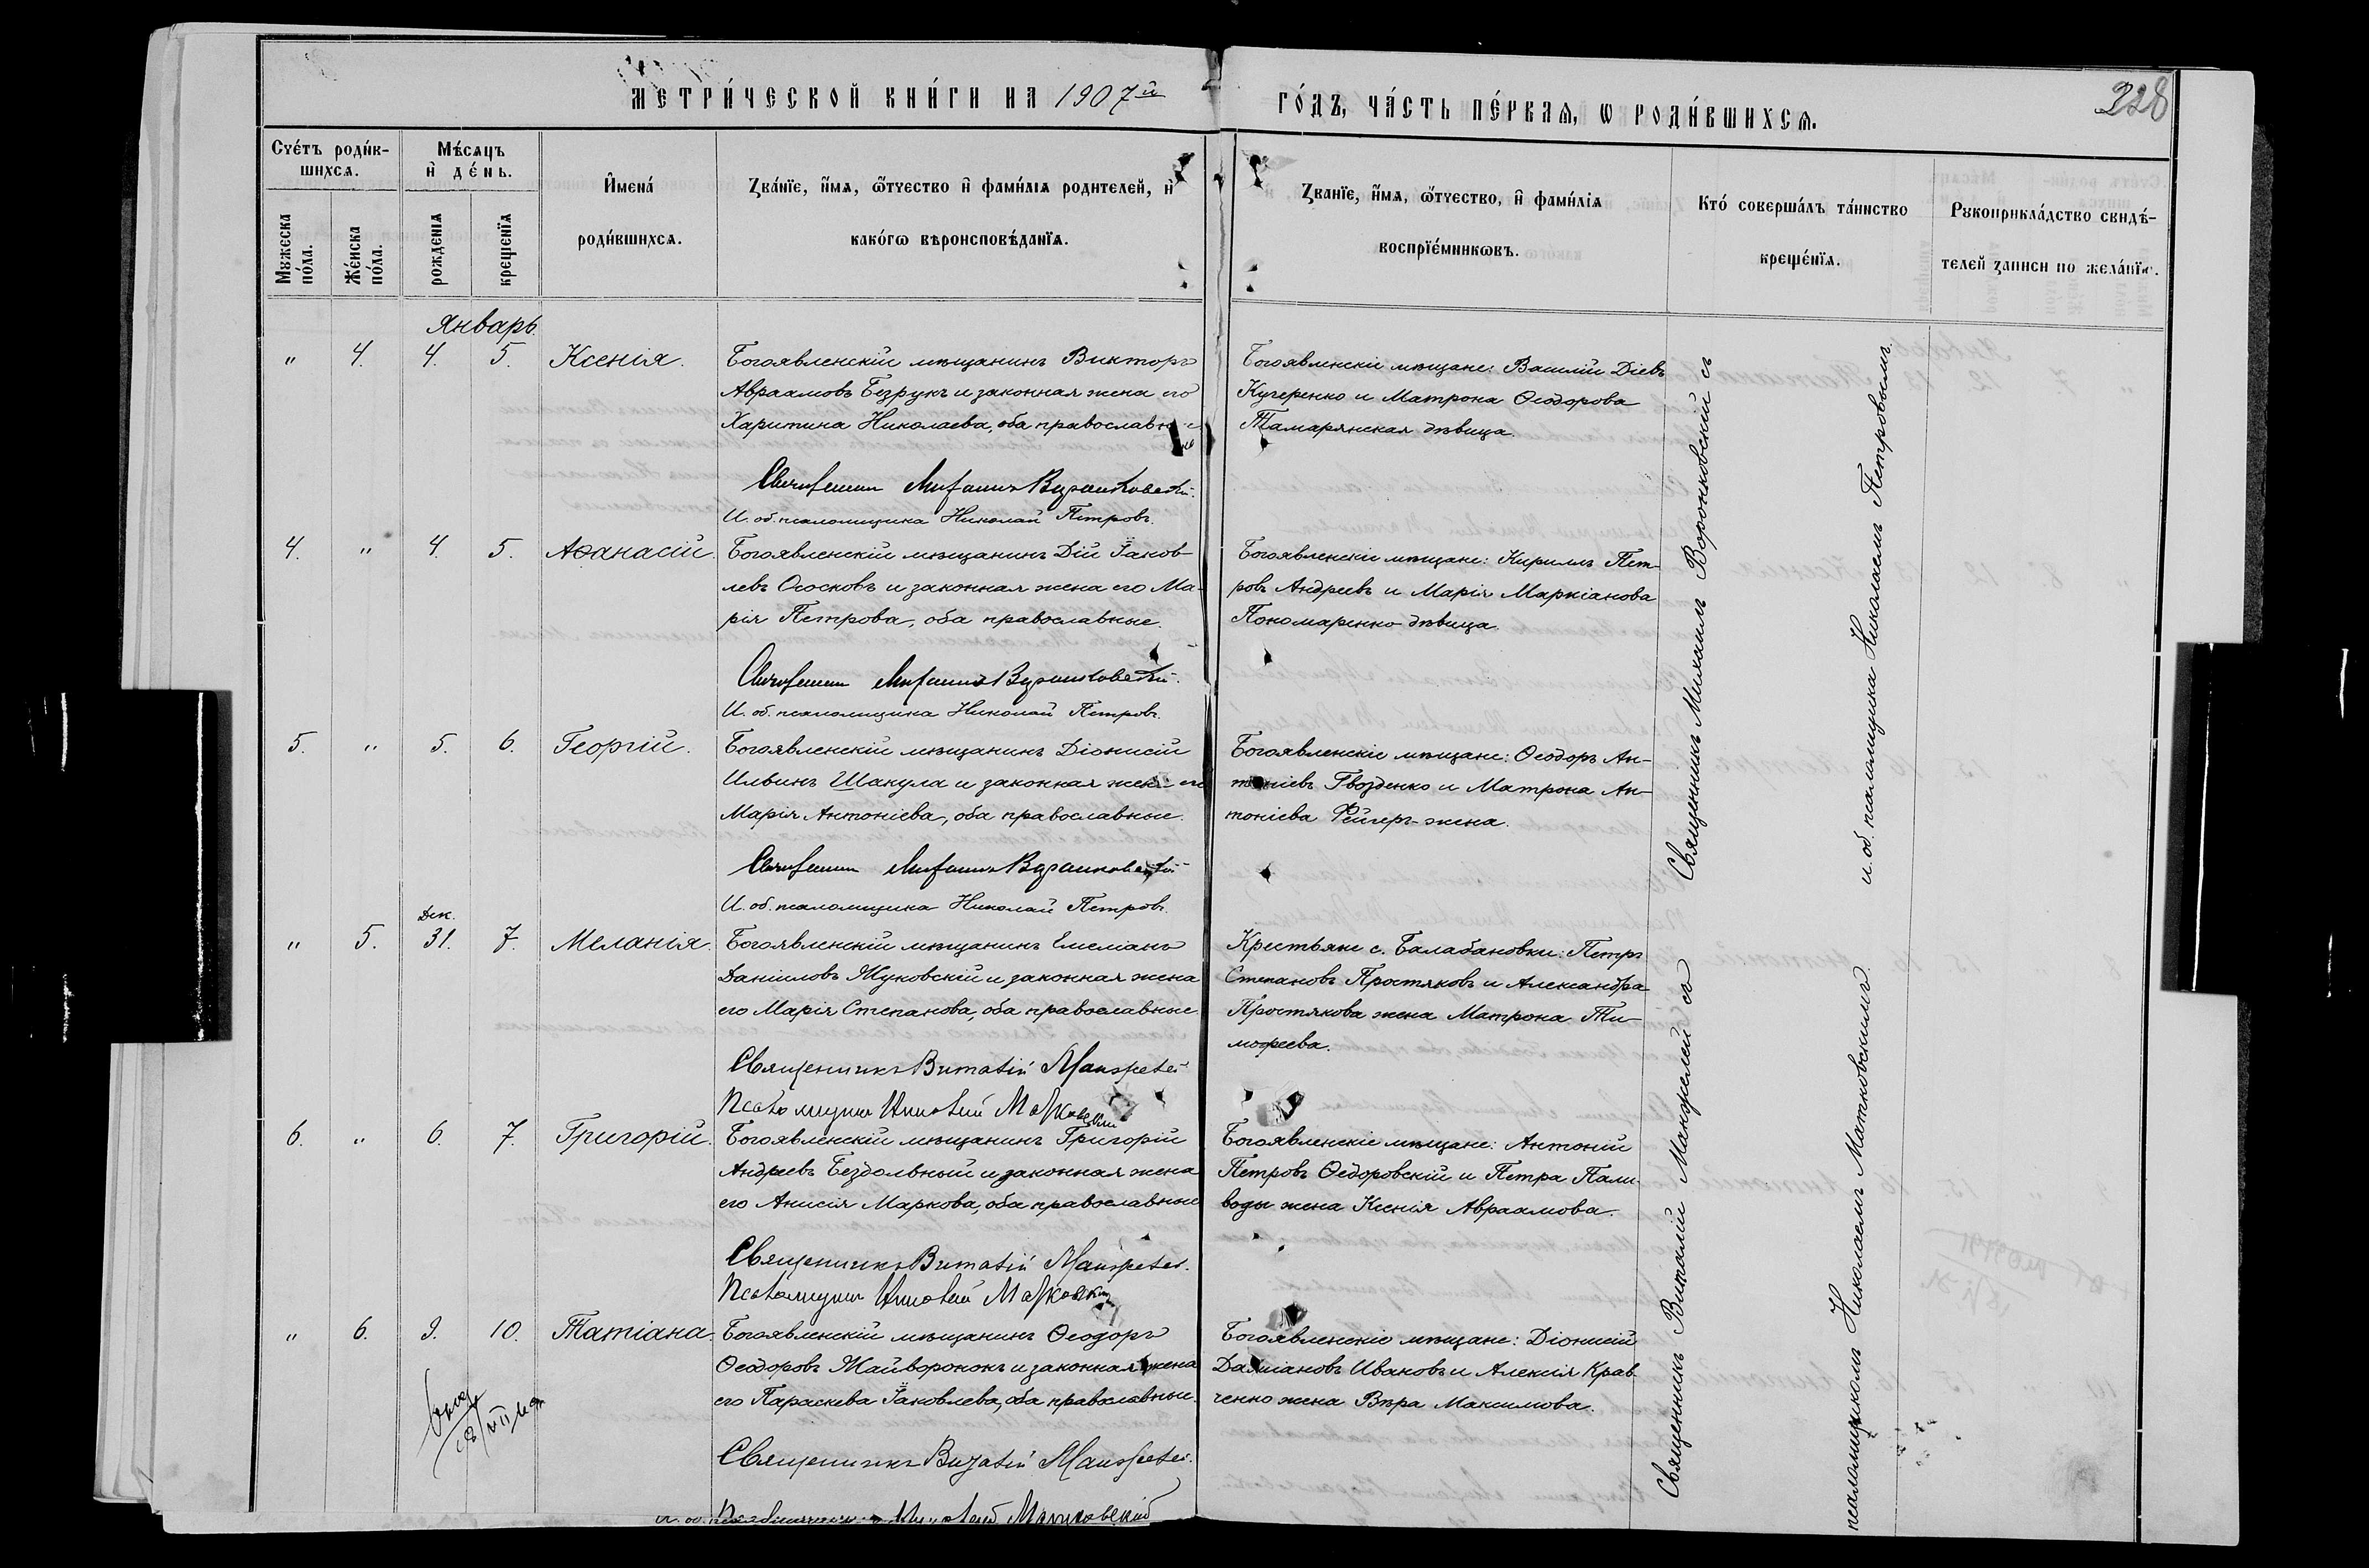 МЕТРИ́ЧЕСКОЙ КНИ́ГИ НА 1907й
ГО́ДЪ, ЧА́СТЬ ПЕ́РВАѦ, Ѡ РОДИ́ВШИХСѦ.
228
Сче́тъ роди́в-
шихсѧ.
Мꙋжеска
по́ла.
Же́нска
по́ла.
Мѣ́сѧцъ
и҆ де́нь.
рожденїѧ
крещенїѧ
И҆мена́
роди́вшихсѧ.
Ꙁва́нїе, и҆́мѧ, ѻ҆́тчество и҆ фами́лїѧ родителей, и҆
како́гѡ вѣроисповѣ́данїѧ.
Ꙁванїе, и҆́мѧ, ѻ҆́тчество, и҆ фами́лїѧ
воспрїе́мникѡвъ.
Кто́ соверша́лъ та́инство
креще́нїѧ.
Рꙋкоприкла́дство свидѣ́-
телей ꙁаписи по жела́нїю.
Январь.
" 4. 4. 5. Ксенія.
Богоявленскій мѣщанинъ Викторъ
Авраамовъ Безрукъ и законная жена его
Харитина Николаева, оба православные
Священникъ Михаилъ Воронковскій.
И. об. псаломщика Николай Петровъ.
Богоявленскіе мѣщане: Василій Діевъ
Кучеренко и Матрона Ѳеодорова
Тамарянская дѣвица.
4. " 4. 5. Аѳанасій.
Богоявленскій мѣщанинъ Дій Іаков-
левъ Ососковъ и законная жена его Ма-
рія Петрова, оба православные.
Священникъ Михаилъ Воронковскій.
И. об. псаломщика Николай Петровъ.
Богоявленскіе мѣщане: Кириллъ Пет-
ровъ Андреевъ и Марія Маркіанова
Пономаренко дѣвица.
5. " 5. 6. Георгій.
Богоявленскій мѣщанинъ Діонисій
Ильинъ Шакула и законная жена его
Марія Антоніева, оба православные.
Священникъ Михаилъ Воронковскій
И. об. псаломщика Николай Петровъ.
Богоявленскіе мѣщане: Ѳеодоръ Ан-
тоніевъ Гвозденко и Матрона Ан-
тоніева Рейгеръ-жена.
Священникъ Михаилъ Воронковскій съ
и. об. псаломщика Николаемъ Петровымъ.
Дек.
" 5. 31. 7. Меланія.
Богоявленскій мѣщанинъ Емеліанъ
Даніиловъ Жуковскій и законная жена
его Марія Степанова, оба православные
Священникъ Виталій Манжелей
Псаломщикъ Николай Матковскій
Крестьяне с. Балабановки: Петръ
Степановъ Простяковъ и Александра
Простякова жена Матрона Ти-
моѳеева.
6. " 6. 7. Григорій.
Богоявленскій мѣщанинъ Григорій
Андреевъ Бездольный и законная жена
его Анисія Маркова, оба православные
Священникъ Виталій Манжелей.
Псаломщикъ Николай Матковскій
Богоявленскіе мѣщане: Антоній
Петровъ Ѳедоровскій и Петра Пали-
воды жена Ксенія Авраамова.
" 6. 9. 10. Татіана.
Богоявленскій мѣщанинъ Ѳеодоръ
Ѳеодоровъ Майворонокъ и законная жена
его Параскева Іаковлева, оба православные.
Священникъ Виталій Манжелей.
Николай Матковскій
Богоявленскіе мѣщане: Діонисій
Даміановъ Ивановъ и Алексія Крав-
ченко жена Вѣра Максимова.
Священникъ Виталій Манжелей съ
псаломщикомъ Николаемъ Матковскимъ.